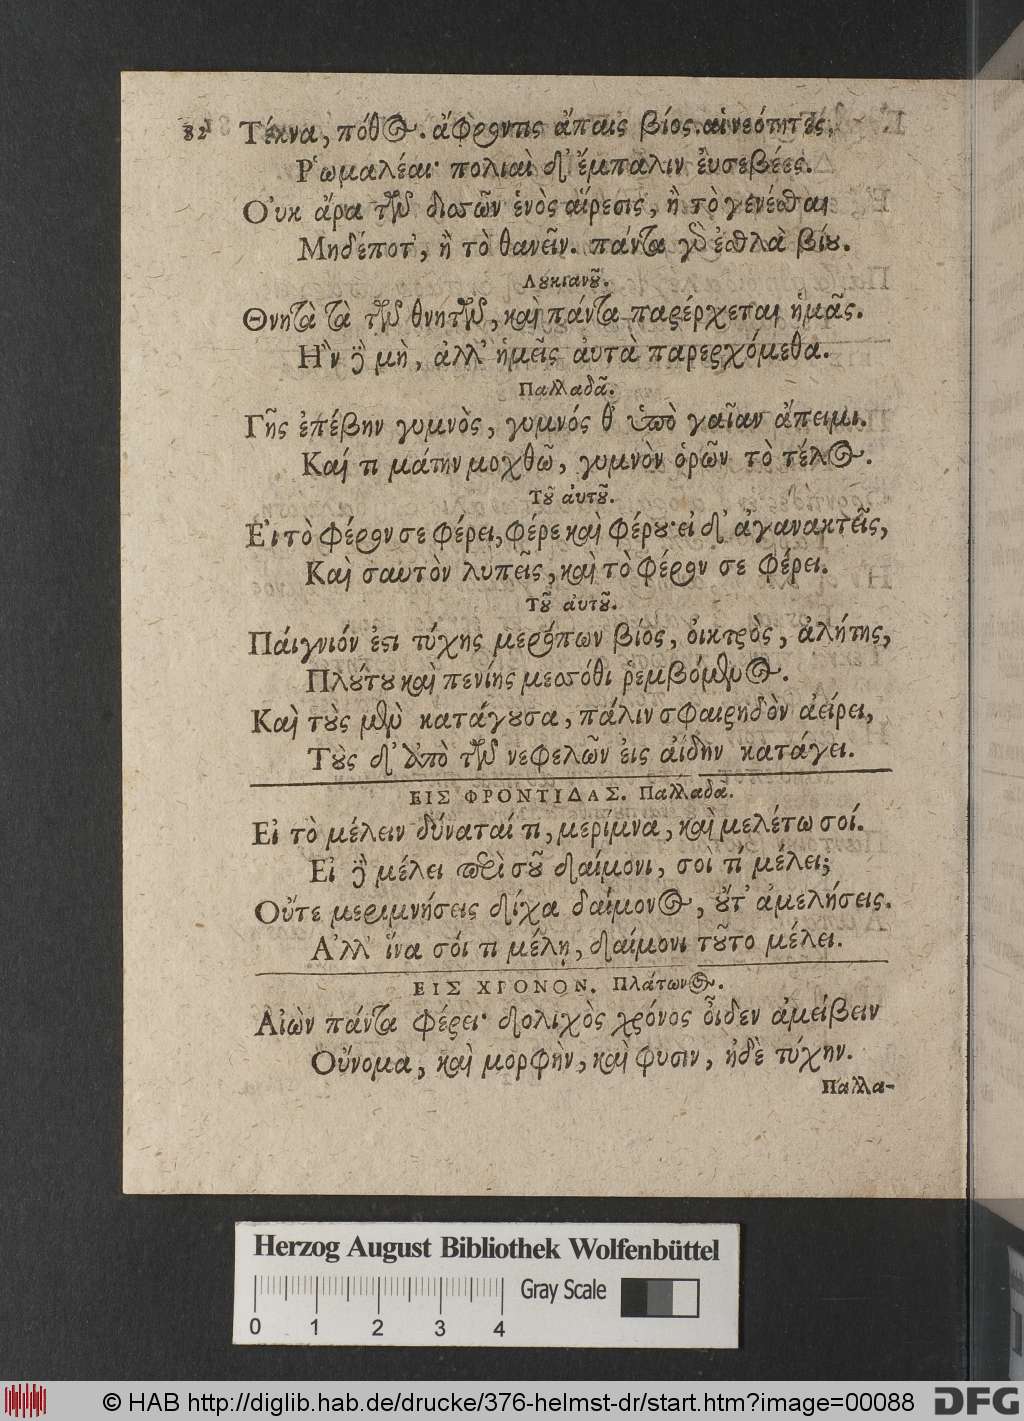 82 Τέκνα, πόθος. ἄφροντις ἄπαις βίος. αἱ νεότητες,
Ῥωμαλέαι· πολιαὶ δ' ἔμπαλιν ἐυσεβέες.
Οὐκ ἄρα τῶν δισσῶν ἑνὸς αἵρεσις, ἢ τὸ γενέσθαι
Μηδέποτ', ἢ τὸ θανεῖν. πάντα γὸ ἐσθλὰ βίου.
Λουκιανοῦ.
Θνητὰ τὰ τῶν θνητῶν, καὶ πάντα παρέρχεται ἡμᾶς.
Ἢν ϳ μὴ, ἀλλ' ἡμεῖς ἀυτὰ παρερχόμεθα.
Παλλαδᾶ.
Γῆς ἐπέβην γυμνὸς, γυμνός θ' ὑπὸ γαῖαν ἄπειμι.
Καί τι μάτην μοχθῶ, γυμνὸν ὁρῶν τὸ τέλος.
Τοῦ ἀυτοῦ.
Εἰ τὸ φέρον σε φέρει, φέρε καὶ φέρου· εἰ δ' ἀγανακτεῖς,
Καὶ σαυτὸν λυπεῖς, καὶ τὸ φέρον σε φέρει.
Τοῦ ἀυτοῦ.
Πάιγνιόν ἐστι τύχης μερόπων βίος, ὀικτρὸς, ἀλήτης,
Πλούτου καὶ πενίης μεσσόθι ῥεμβόμενος.
Καὶ τοὺς μὲν κατάγουσα, πάλιν σφαιρηδὸν ἀείρει,
Τοὺς δ' ἀπὸ τῶν νεφελῶν ἐις ἀίδην κατάγει.
ΕΙΣ ΦΡΟΝΤΙΔΑΣ. Παλλαδᾶ.
Εἰ τὸ μέλειν δύναταί τι, μερίμνα, καὶ μελέτω σοί.
Εἰ δὲ μέλει περὶ σοῦ δαίμονι, σοὶ τί μέλει;
Οὔτε μεριμνήσεις δίχα δαίμονος, οὔτ' ἀμελήσεις.
Ἀλλ' ἵνα σόι τι μέλῃ, δαίμονι τοῦτο μέλει.
ΕΙΣ ΧΡΟΝΟΝ. Πλάτωνος.
Αἰὼν πάντα φέρει· δολιχὸς χρόνος οἶδεν ἀμείβειν
Οὔνομα, καὶ μορφὴν, καὶ φυσιν, ἠδὲ τύχην.
Παλλα-
Herzog August Bibliothek Wolfenbüttel
Gray Scale
0 1 2 3 4
© HAB http://diglib.hab.de/drucke/376-helmst-dr/start.htm?image=00088 DFG